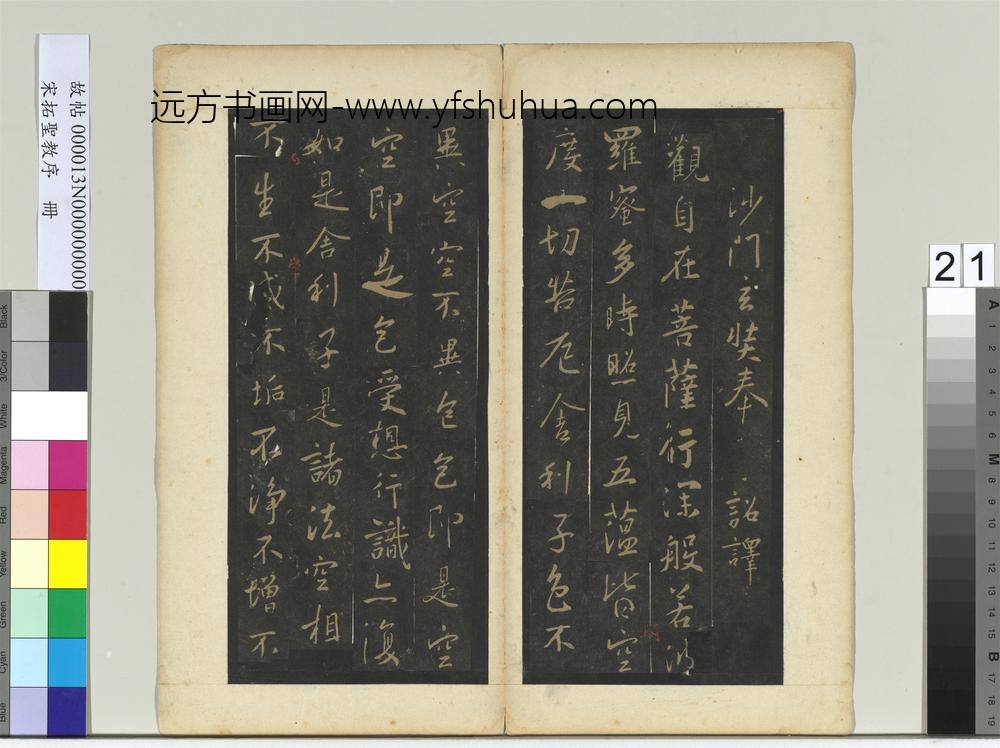 远方书画网-www.yfshuhua.com
沙門玄奘奉 詔譯
觀自在菩薩行深般若波
羅蜜多時照見五蘊皆空
度一切苦厄舍利子色不
異空空不異色色即是空
空即是色受想行識亦復
如是舍利子是諸法空相
不生不滅不垢不淨不增不
故帖 000013N000000000
宋拓聖教序 冊
21
Black
3/Color
White
Magenta
Red
Yellow
Green
Cyan
Blue
A 1 2 3 4 5 6 M 8 9 10 11 12 13 14 15 B 17 18 19